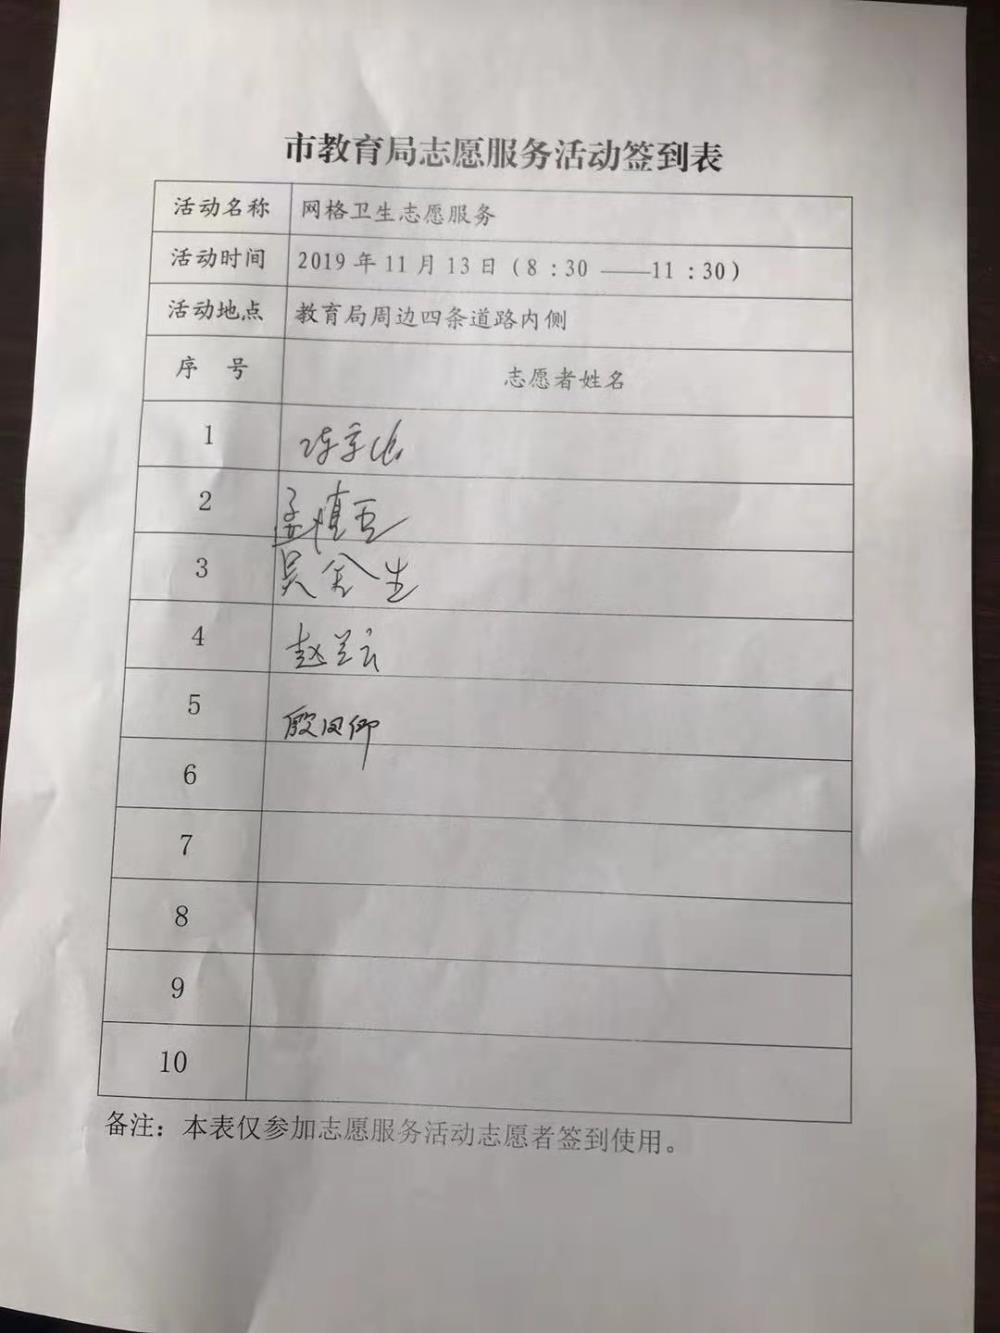 市教育局志愿服务活动签到表
活动名称 网格卫生志愿服务
活动时间 2019年11月13日(8:30 ——11:30)
活动地点 教育局周边四条道路内侧
序 号 志愿者姓名
1
2 孟慎吾
3 吴金生
4 赵兰云
5 殷凤仰
6
7
8
9
10
备注：本表仅参加志愿服务活动志愿者签到使用。